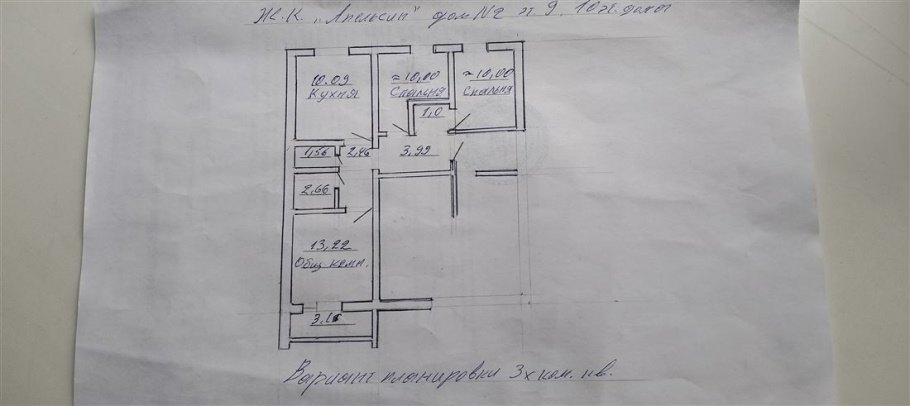 Ж.К. „Апельсин" дом №2 эт 9, 10эт. дома
10.09
Кухня
≈10,00
Спальня
≈10,00
Спальня
1,0
1,56
2,46
3,99
2,66
13,22
Общ. комн.
3.15
Вариант планировки 3х ком. кв.